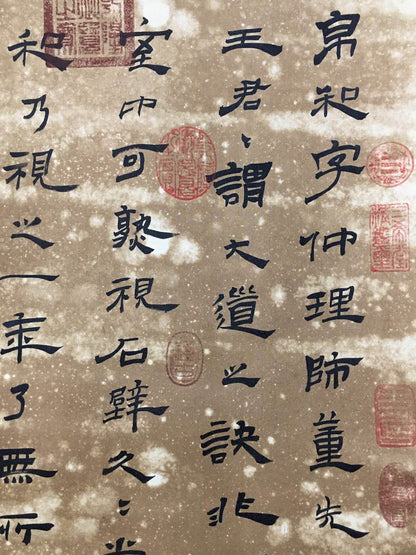 帛和字仲理師董先
王君〻謂大道之訣非
室中可熟視石壁久〻
和乃視之一年了無所